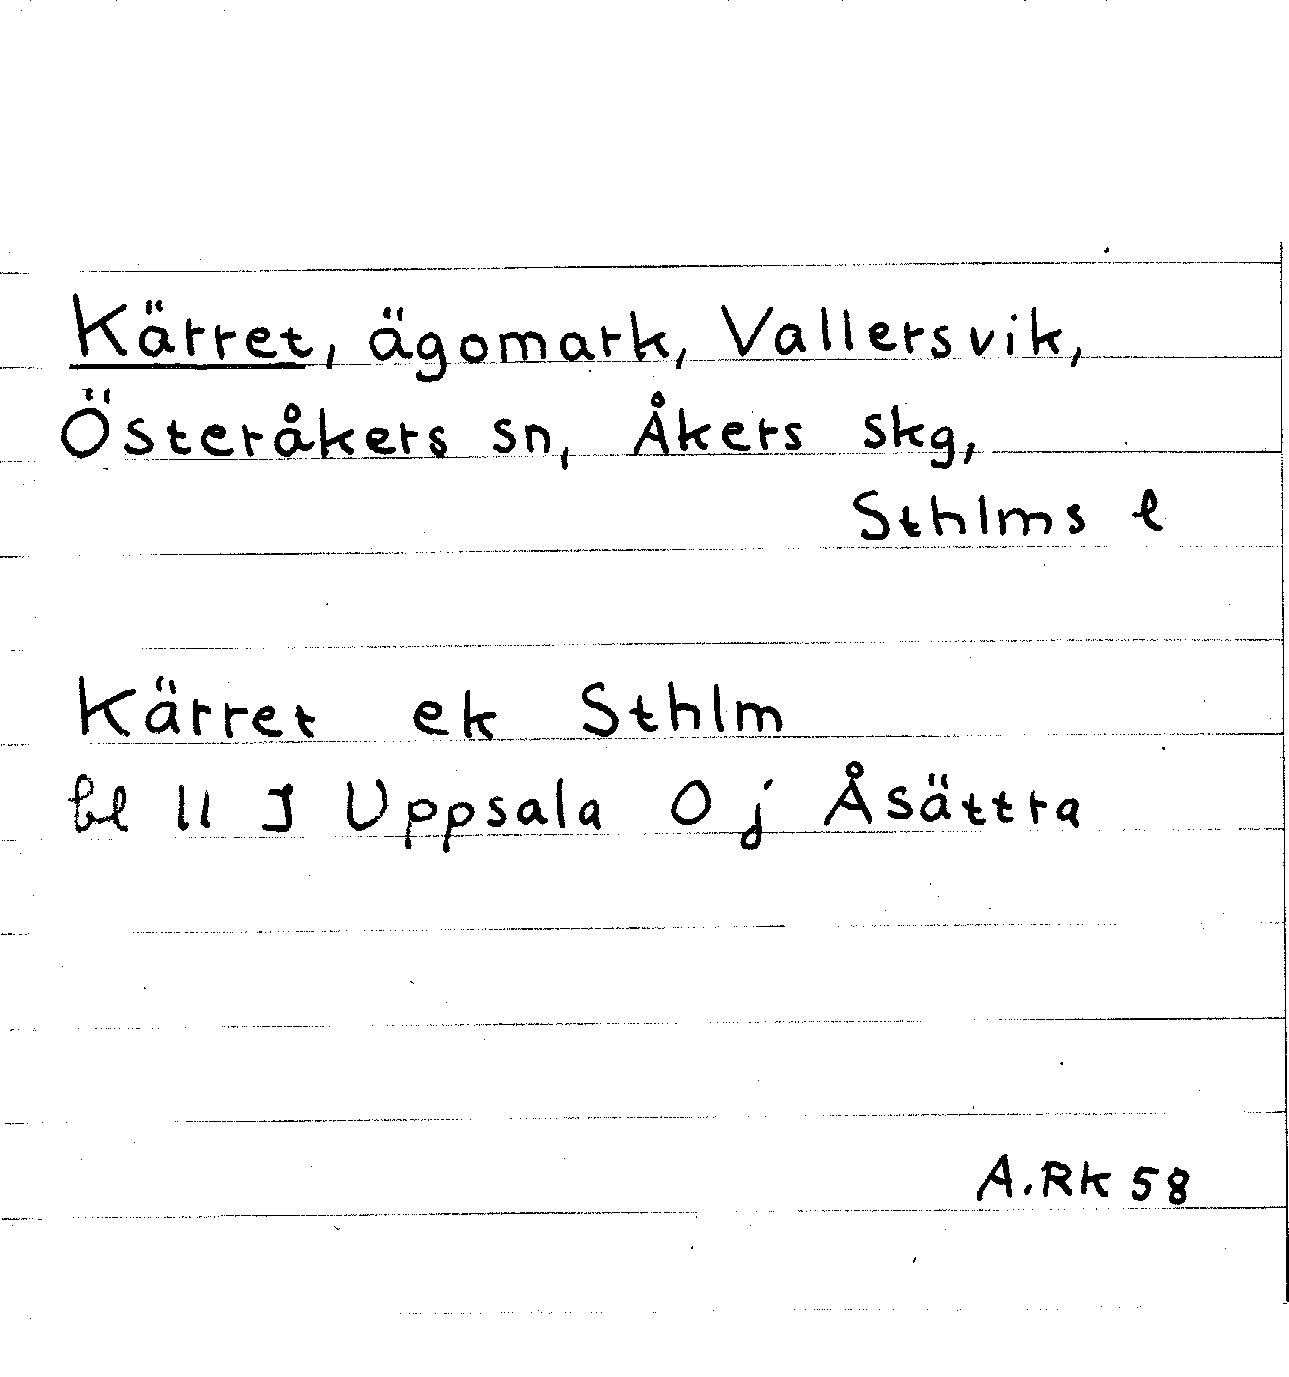 Kärret, ägomark, Vallersvik,
Österåkers sn, Åkers skg,
Sthlms l
Kärret ek Sthlm
bl 11 J Uppsala O j Åsättra
A.Rk 58